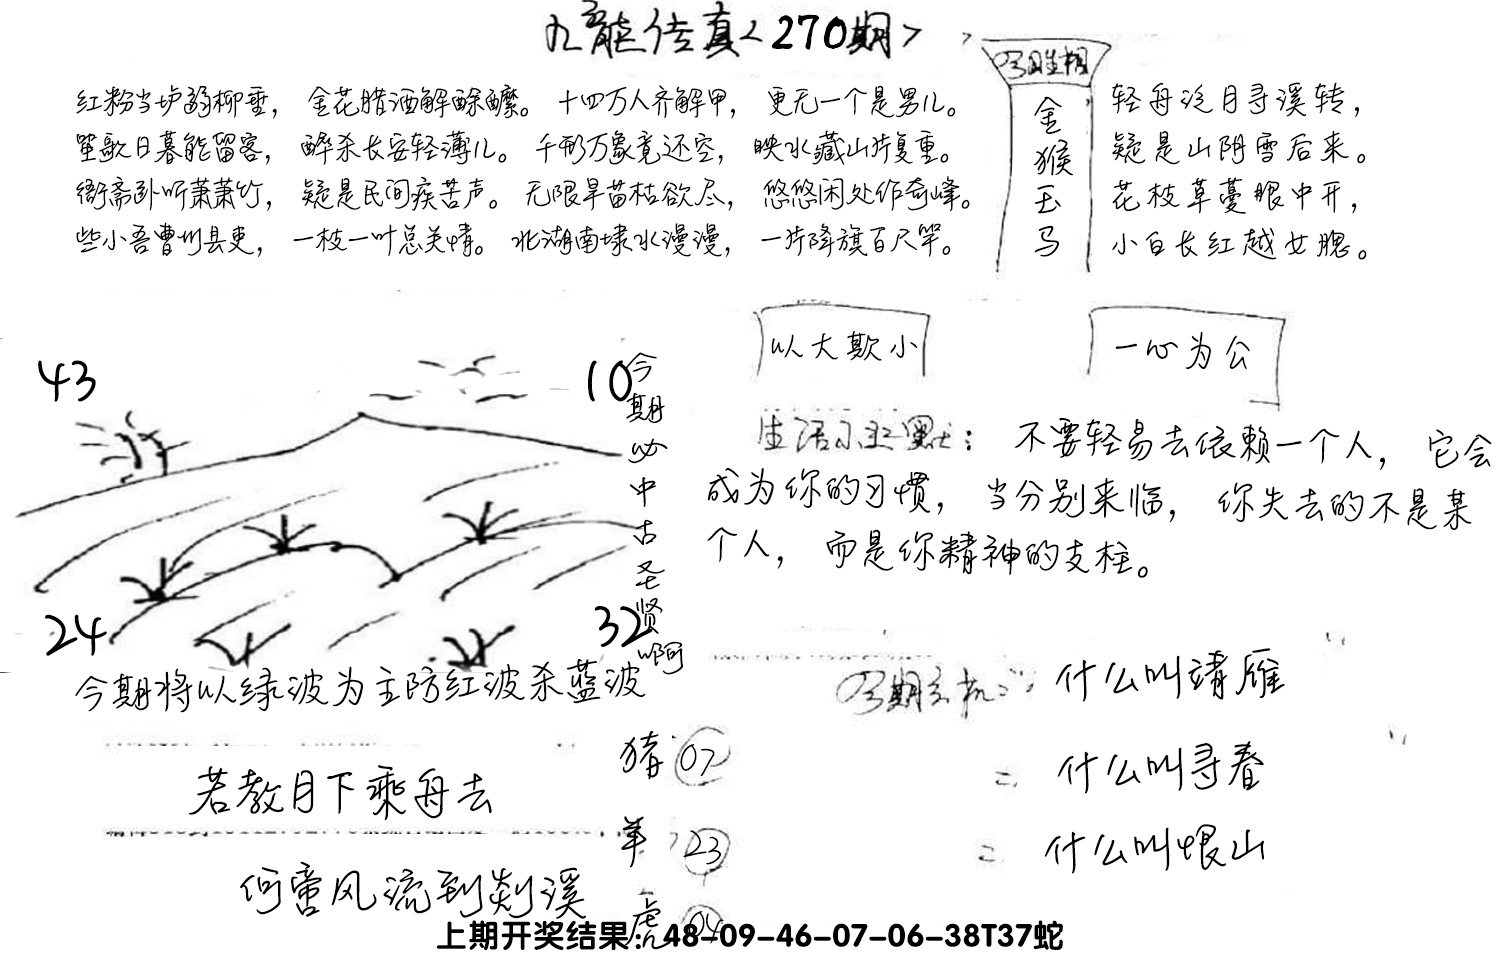 九龙传真<270期>
红粉当垆弱柳垂，金花腊酒解酴醾。十四万人齐解甲，更无一个是男儿。
笙歌日暮能留客，醉杀长安轻薄儿。千形万象竟还空，映水藏山片复重。
衙斋卧听萧萧竹，疑是民间疾苦声。无限旱苗枯欲尽，悠悠闲处作奇峰。
些小吾曹州县吏，一枝一叶总关情。北湖南埭水漫漫，一片降旗百尺竿。
今日生相
金猴玉马
轻舟泛月寻溪转，
疑是山阴雪后来。
花枝草蔓眼中开，
小白长红越女腮。
以大欺小
一心为公
43
10
24
32
今期必中古圣贤啊
生活小幽默：不要轻易去依赖一个人，它会
成为你的习惯，当分别来临，你失去的不是某
个人，而是你精神的支柱。
今期将以绿波为主防红波杀蓝波
今期玄机：什么叫靖雁
什么叫寻春
什么叫恨山
若教月下乘舟去
何啻风流到剡溪
猪 07
羊 23
虎 04
上期开奖结果：48-09-46-07-06-38T37蛇